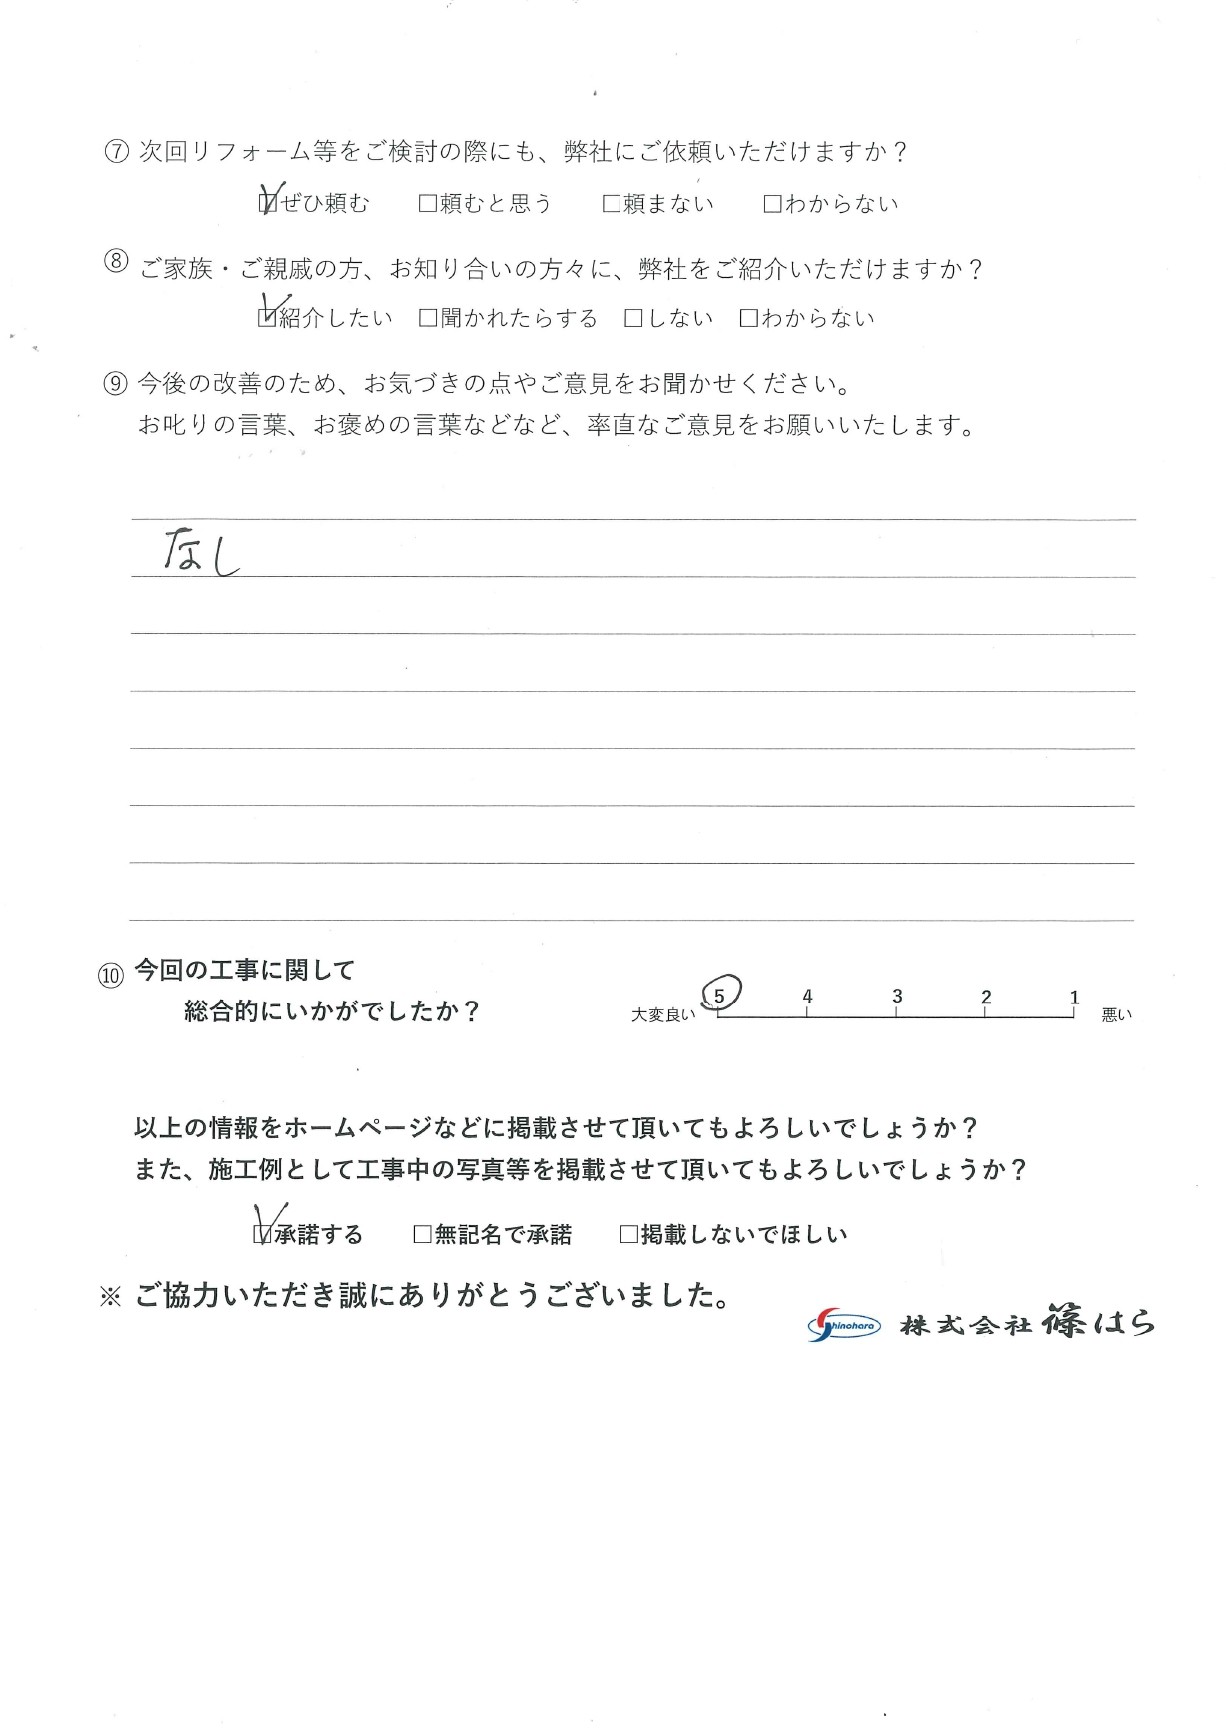 ⑦ 次回リフォーム等をご検討の際にも、弊社にご依頼いただけますか？
☑ぜひ頼む □頼むと思う □頼まない □わからない
⑧ ご家族・ご親戚の方、お知り合いの方々に、弊社をご紹介いただけますか？
☑紹介したい □聞かれたらする □しない □わからない
⑨ 今後の改善のため、お気づきの点やご意見をお聞かせください。
お叱りの言葉、お褒めの言葉などなど、率直なご意見をお願いいたします。
なし
⑩ 今回の工事に関して
総合的にいかがでしたか？
大変良い 5 4 3 2 1 悪い
以上の情報をホームページなどに掲載させて頂いてもよろしいでしょうか？
また、施工例として工事中の写真等を掲載させて頂いてもよろしいでしょうか？
☑承諾する □無記名で承諾 □掲載しないでほしい
※ ご協力いただき誠にありがとうございました。
Shinohara 株式会社 篠はら